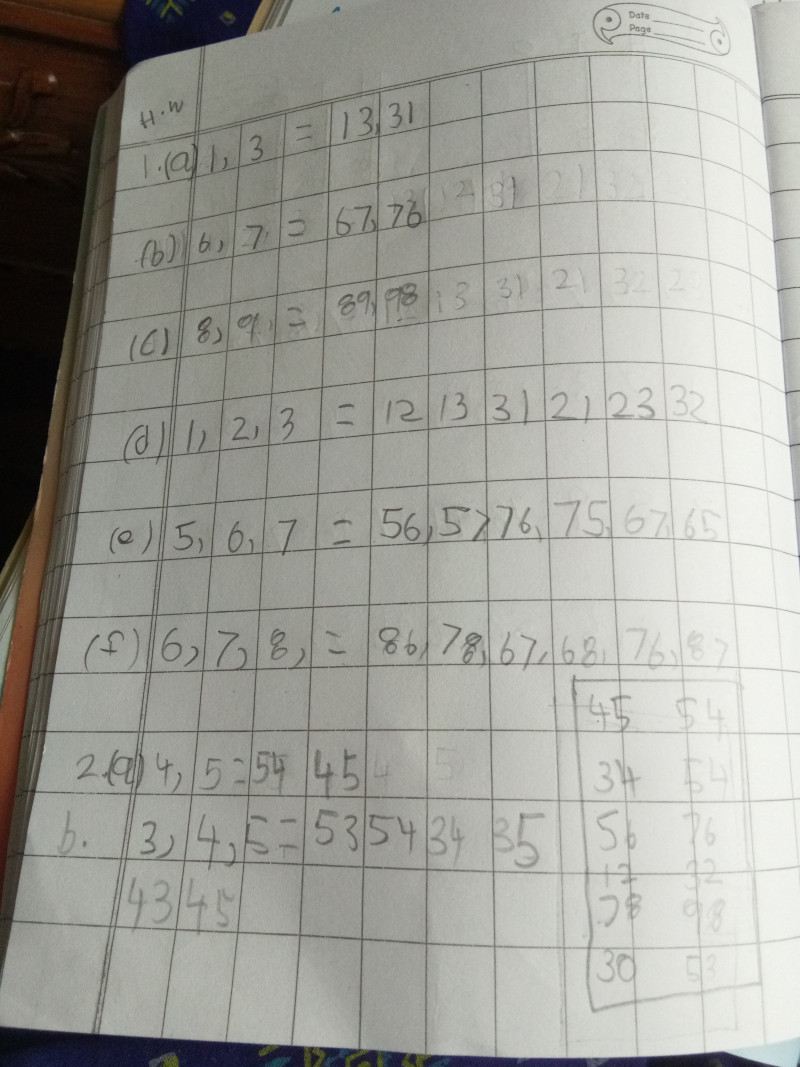 Date
Page
H.W
1.(a) 1, 3 = 13, 31
(b) 6, 7 = 67, 76 12 31 21 32
(c) 8, 9 = 89, 98 13 31 21 32 2
(d) 1, 2, 3 = 12 13 31 21 23 32
(e) 5, 6, 7 = 56, 57 76, 75, 67, 65
(f) 6, 7, 8, = 86, 78, 67, 68, 76, 87
2.(a) 4, 5 = 54 45
b. 3, 4, 5 = 53 54 34 35
43 45
45 54
34 54
56 76
12 32
78 98
30 53